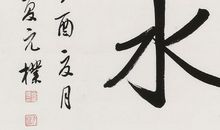 水
酉夏月
夏元樸